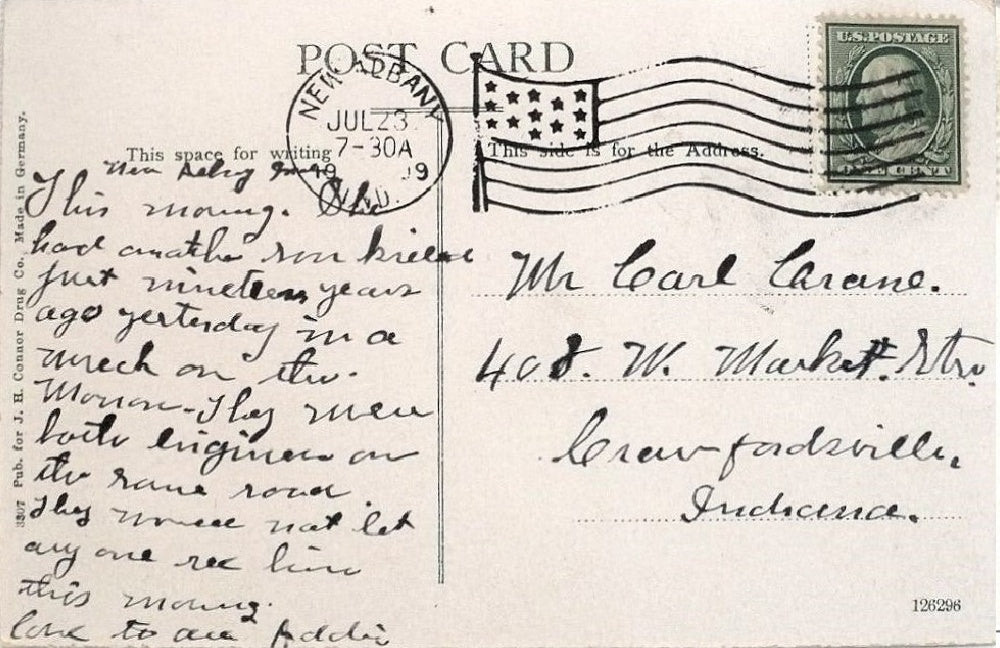 POST CARD
NEW ALBANY
JUL 23
7-30A
19 09
IND.
U.S. POSTAGE
ONE CENT
This space for writing
This side is for the Address.
New Albany
This morning.
had another son killed
just nineteen years
ago yesterday in a
wreck on the
Monon. They were
both engineers on
the same road.
They would not let
any one see him
this morning.
love to all
Mr Carl Crane.
408. W. Market. Str.
Crawfordsville,
Indiana.
3307 Pub. for J. H. Connor Drug Co., Made in Germany.
126296